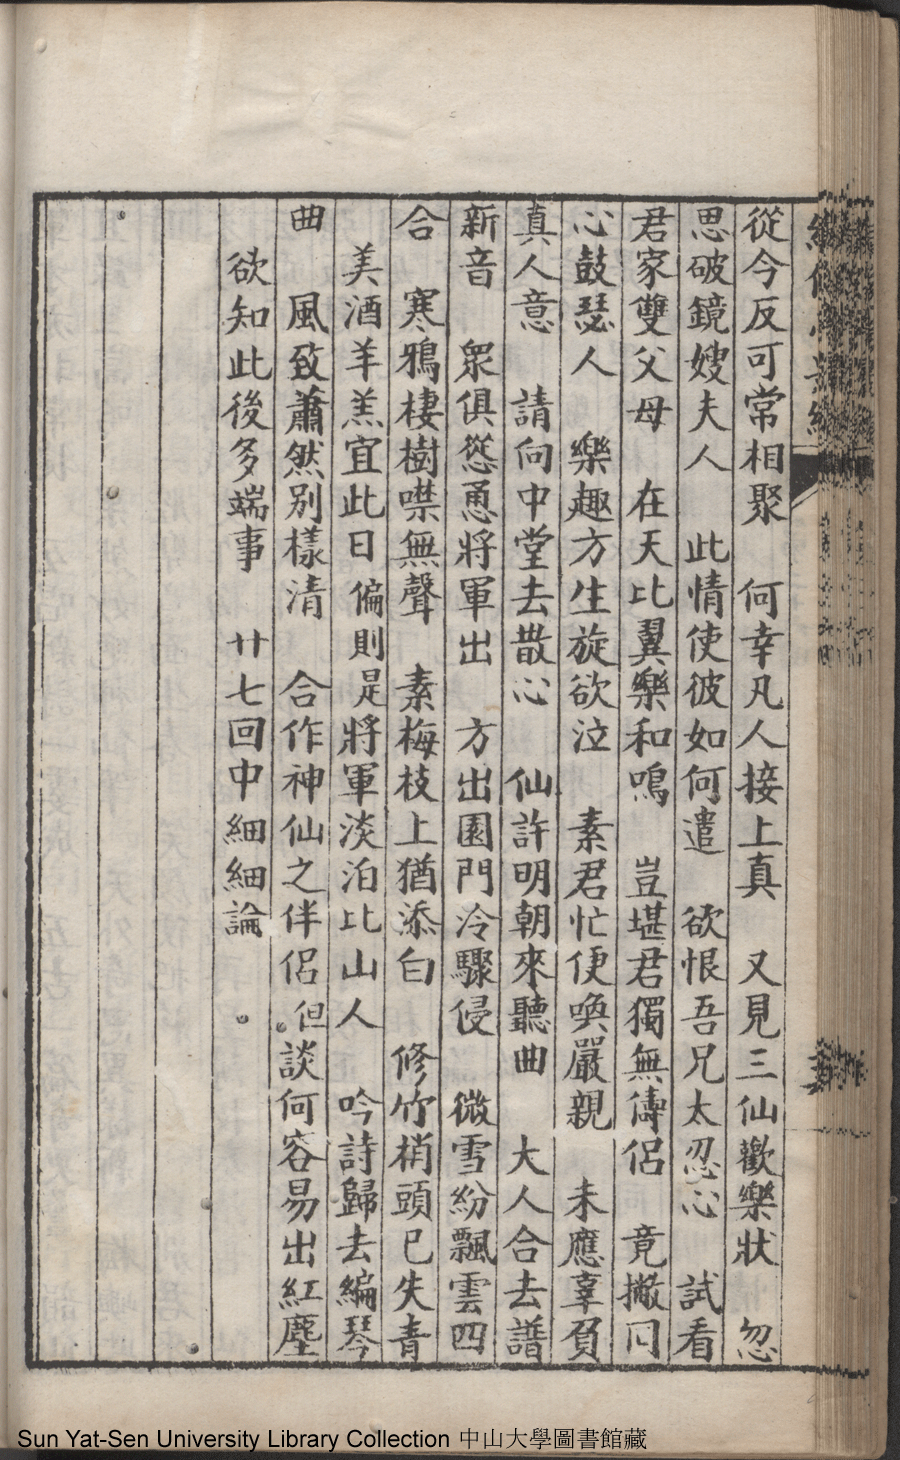 從今反可常相聚　何幸凡人接上真　又見三仙歡樂狀　忽
思破鏡嫂夫人　此情使彼如何遣　欲恨吾兄太忍心　試看
君家雙父母　在天比翼樂和鳴　豈堪君獨無儔侶　竟撇同
心鼓瑟人　樂趣方生旋欲泣　素君忙便喚嚴親　未應辜負
真人意　請向中堂去散心　仙許明朝來聽曲　大人合去譜
新音　眾俱慫恿將軍出　方出園門冷驟侵　微雪紛飄雲四
合　寒鴉棲樹噤無聲　素梅枝上猶添白　修竹梢頭已失青
美酒羊羔宜此日偏則是將軍淡泊比山人　吟詩歸去編琴
曲　風致蕭然別樣清　合作神仙之伴侶但談何容易出紅塵
欲知此後多端事　廿七回中細細論
Sun Yat-Sen University Library Collection 中山大學圖書館藏